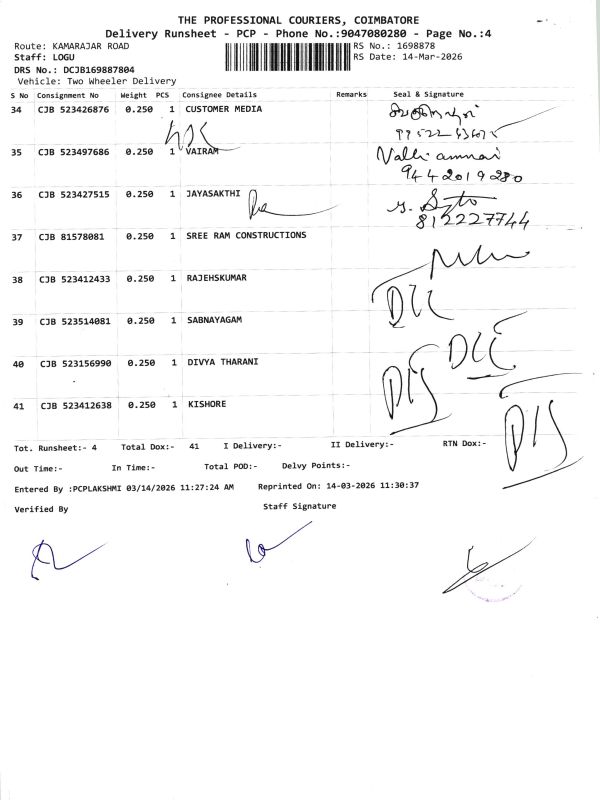 THE PROFESSIONAL COURIERS, COIMBATORE
Delivery Runsheet - PCP - Phone No.:9047080280 - Page No.:4
Route: KAMARAJAR ROAD RS No.: 1698878
Staff: LOGU RS Date: 14-Mar-2026
DRS No.: DCJB169887804
Vehicle: Two Wheeler Delivery
S No Consignment No Weight PCS Consignee Details Remarks Seal & Signature
34 CJB 523426876 0.250 1 CUSTOMER MEDIA
35 CJB 523497686 0.250 1 VAIRAM Valli ammai
944 2019 280
36 CJB 523427515 0.250 1 JAYASAKTHI
812227744
37 CJB 81578081 0.250 1 SREE RAM CONSTRUCTIONS
38 CJB 523412433 0.250 1 RAJEHSKUMAR
39 CJB 523514081 0.250 1 SABNAYAGAM
40 CJB 523156990 0.250 1 DIVYA THARANI
41 CJB 523412638 0.250 1 KISHORE
Tot. Runsheet:- 4 Total Dox:- 41 I Delivery:- II Delivery:- RTN Dox:-
Out Time:- In Time:- Total POD:- Delvy Points:-
Entered By :PCPLAKSHMI 03/14/2026 11:27:24 AM Reprinted On: 14-03-2026 11:30:37
Verified By Staff Signature